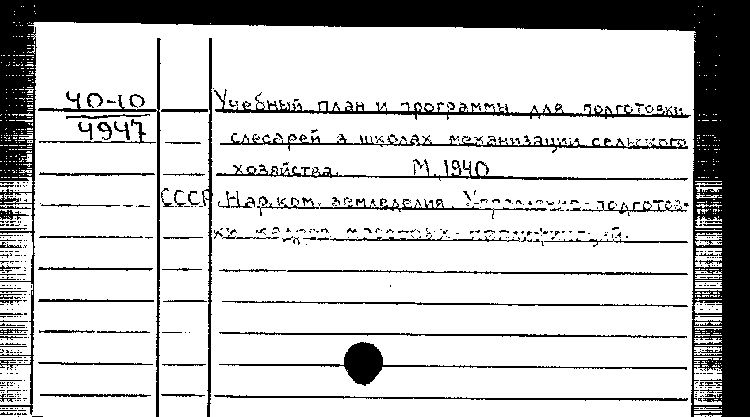 40-10
4947
Учебный план и программы для подготовки
слесарей в школах механизации сельского
хозяйства. М, 1940
СССР. Нар. ком. земледелия. Управление подготов-
ки кадров массовых квалификаций.